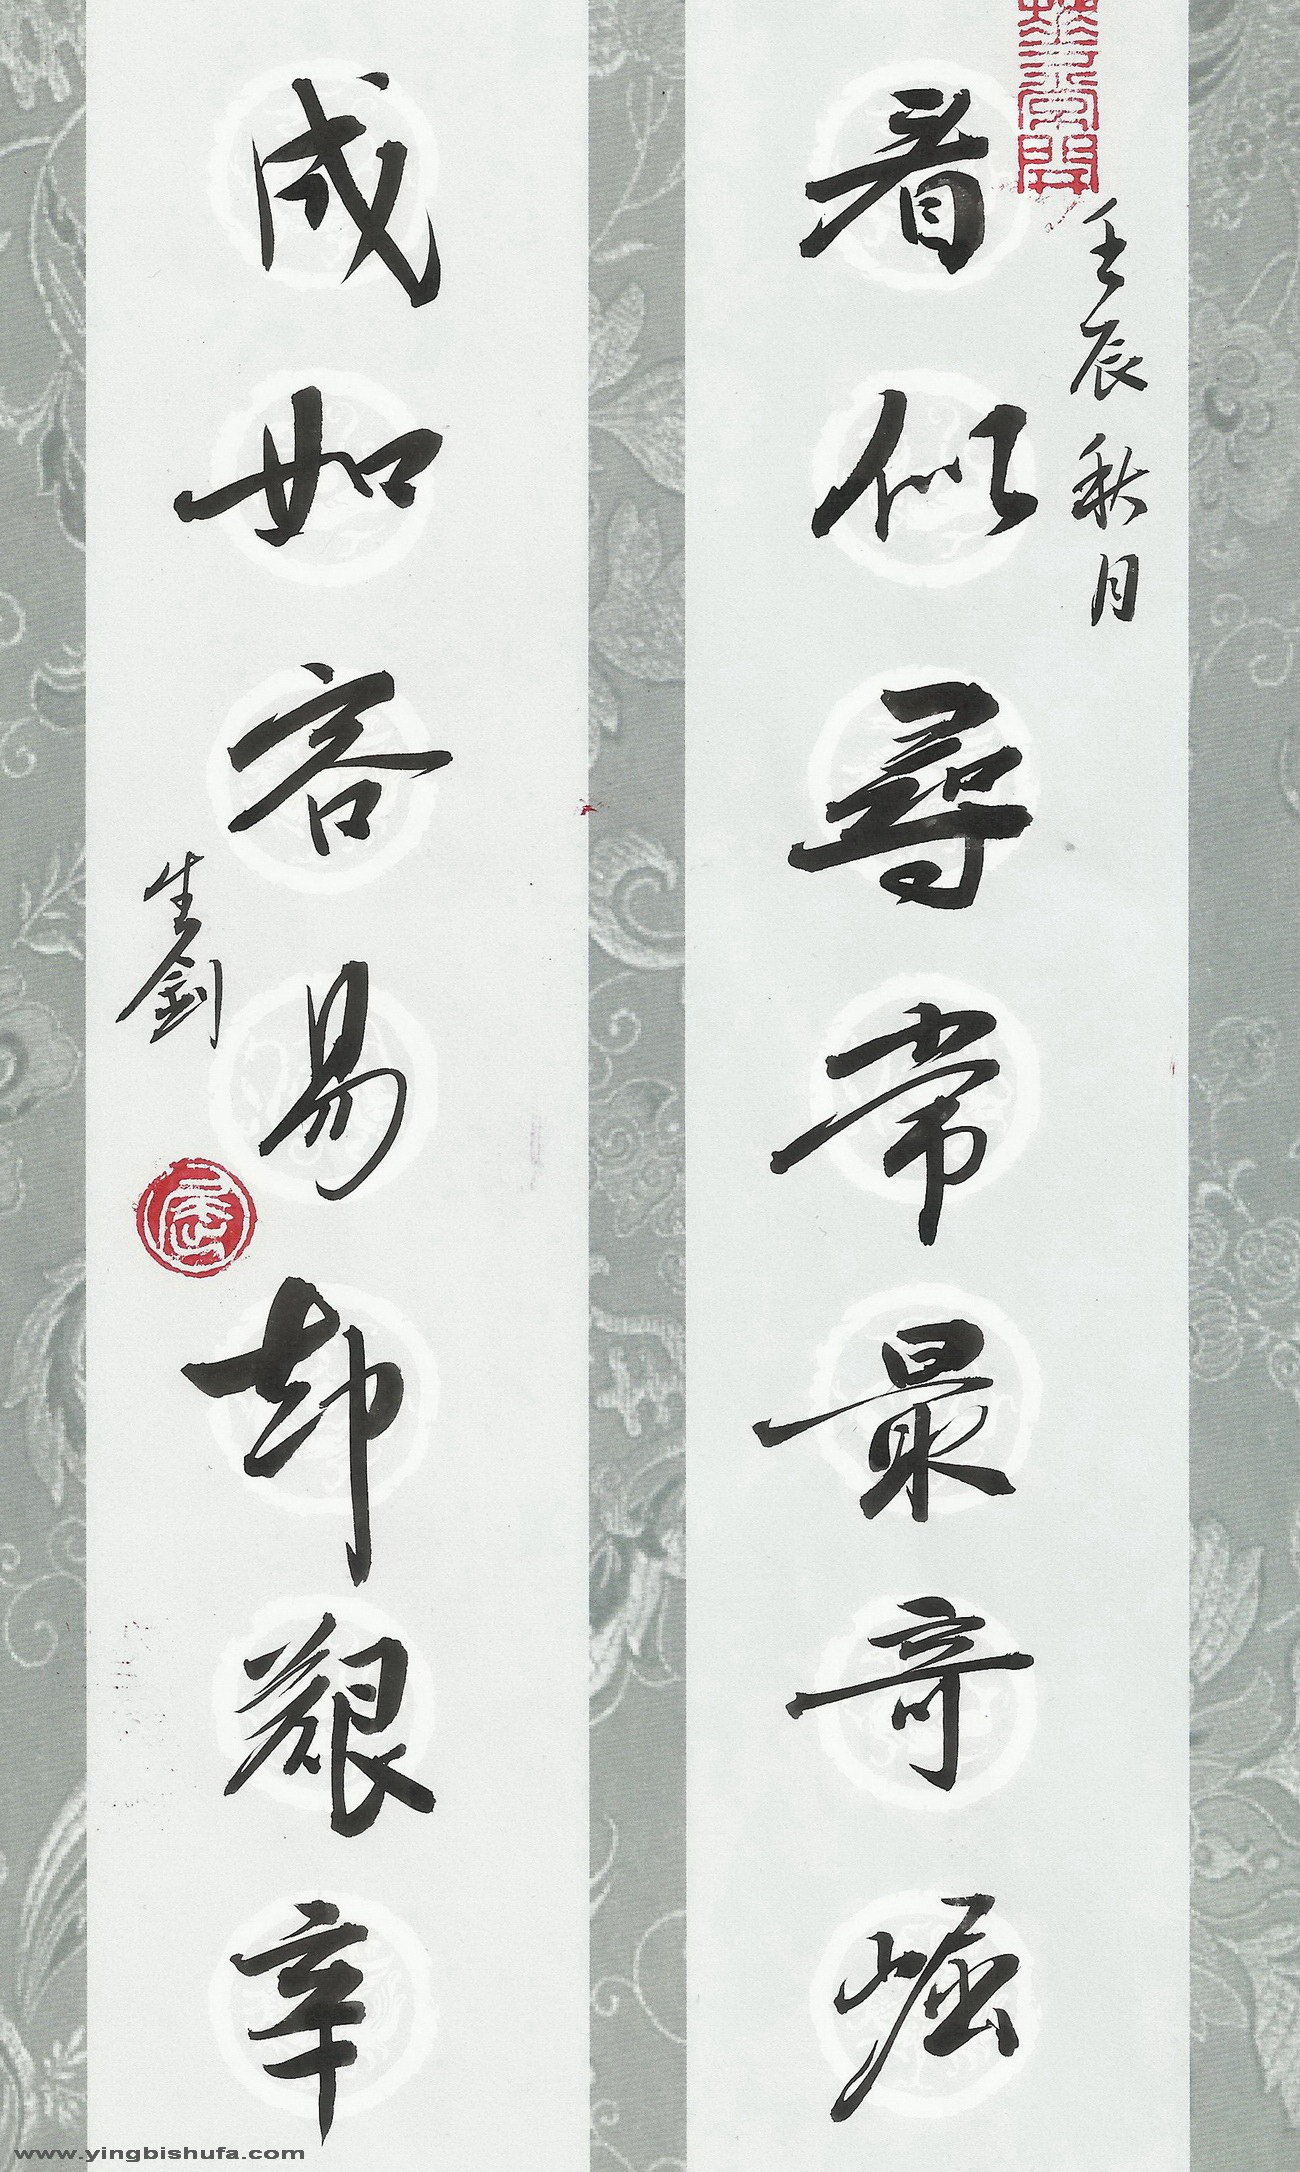 壬辰秋月
看似尋常最奇崛
成如容易却艱辛
生劍
www.yingbishufa.com